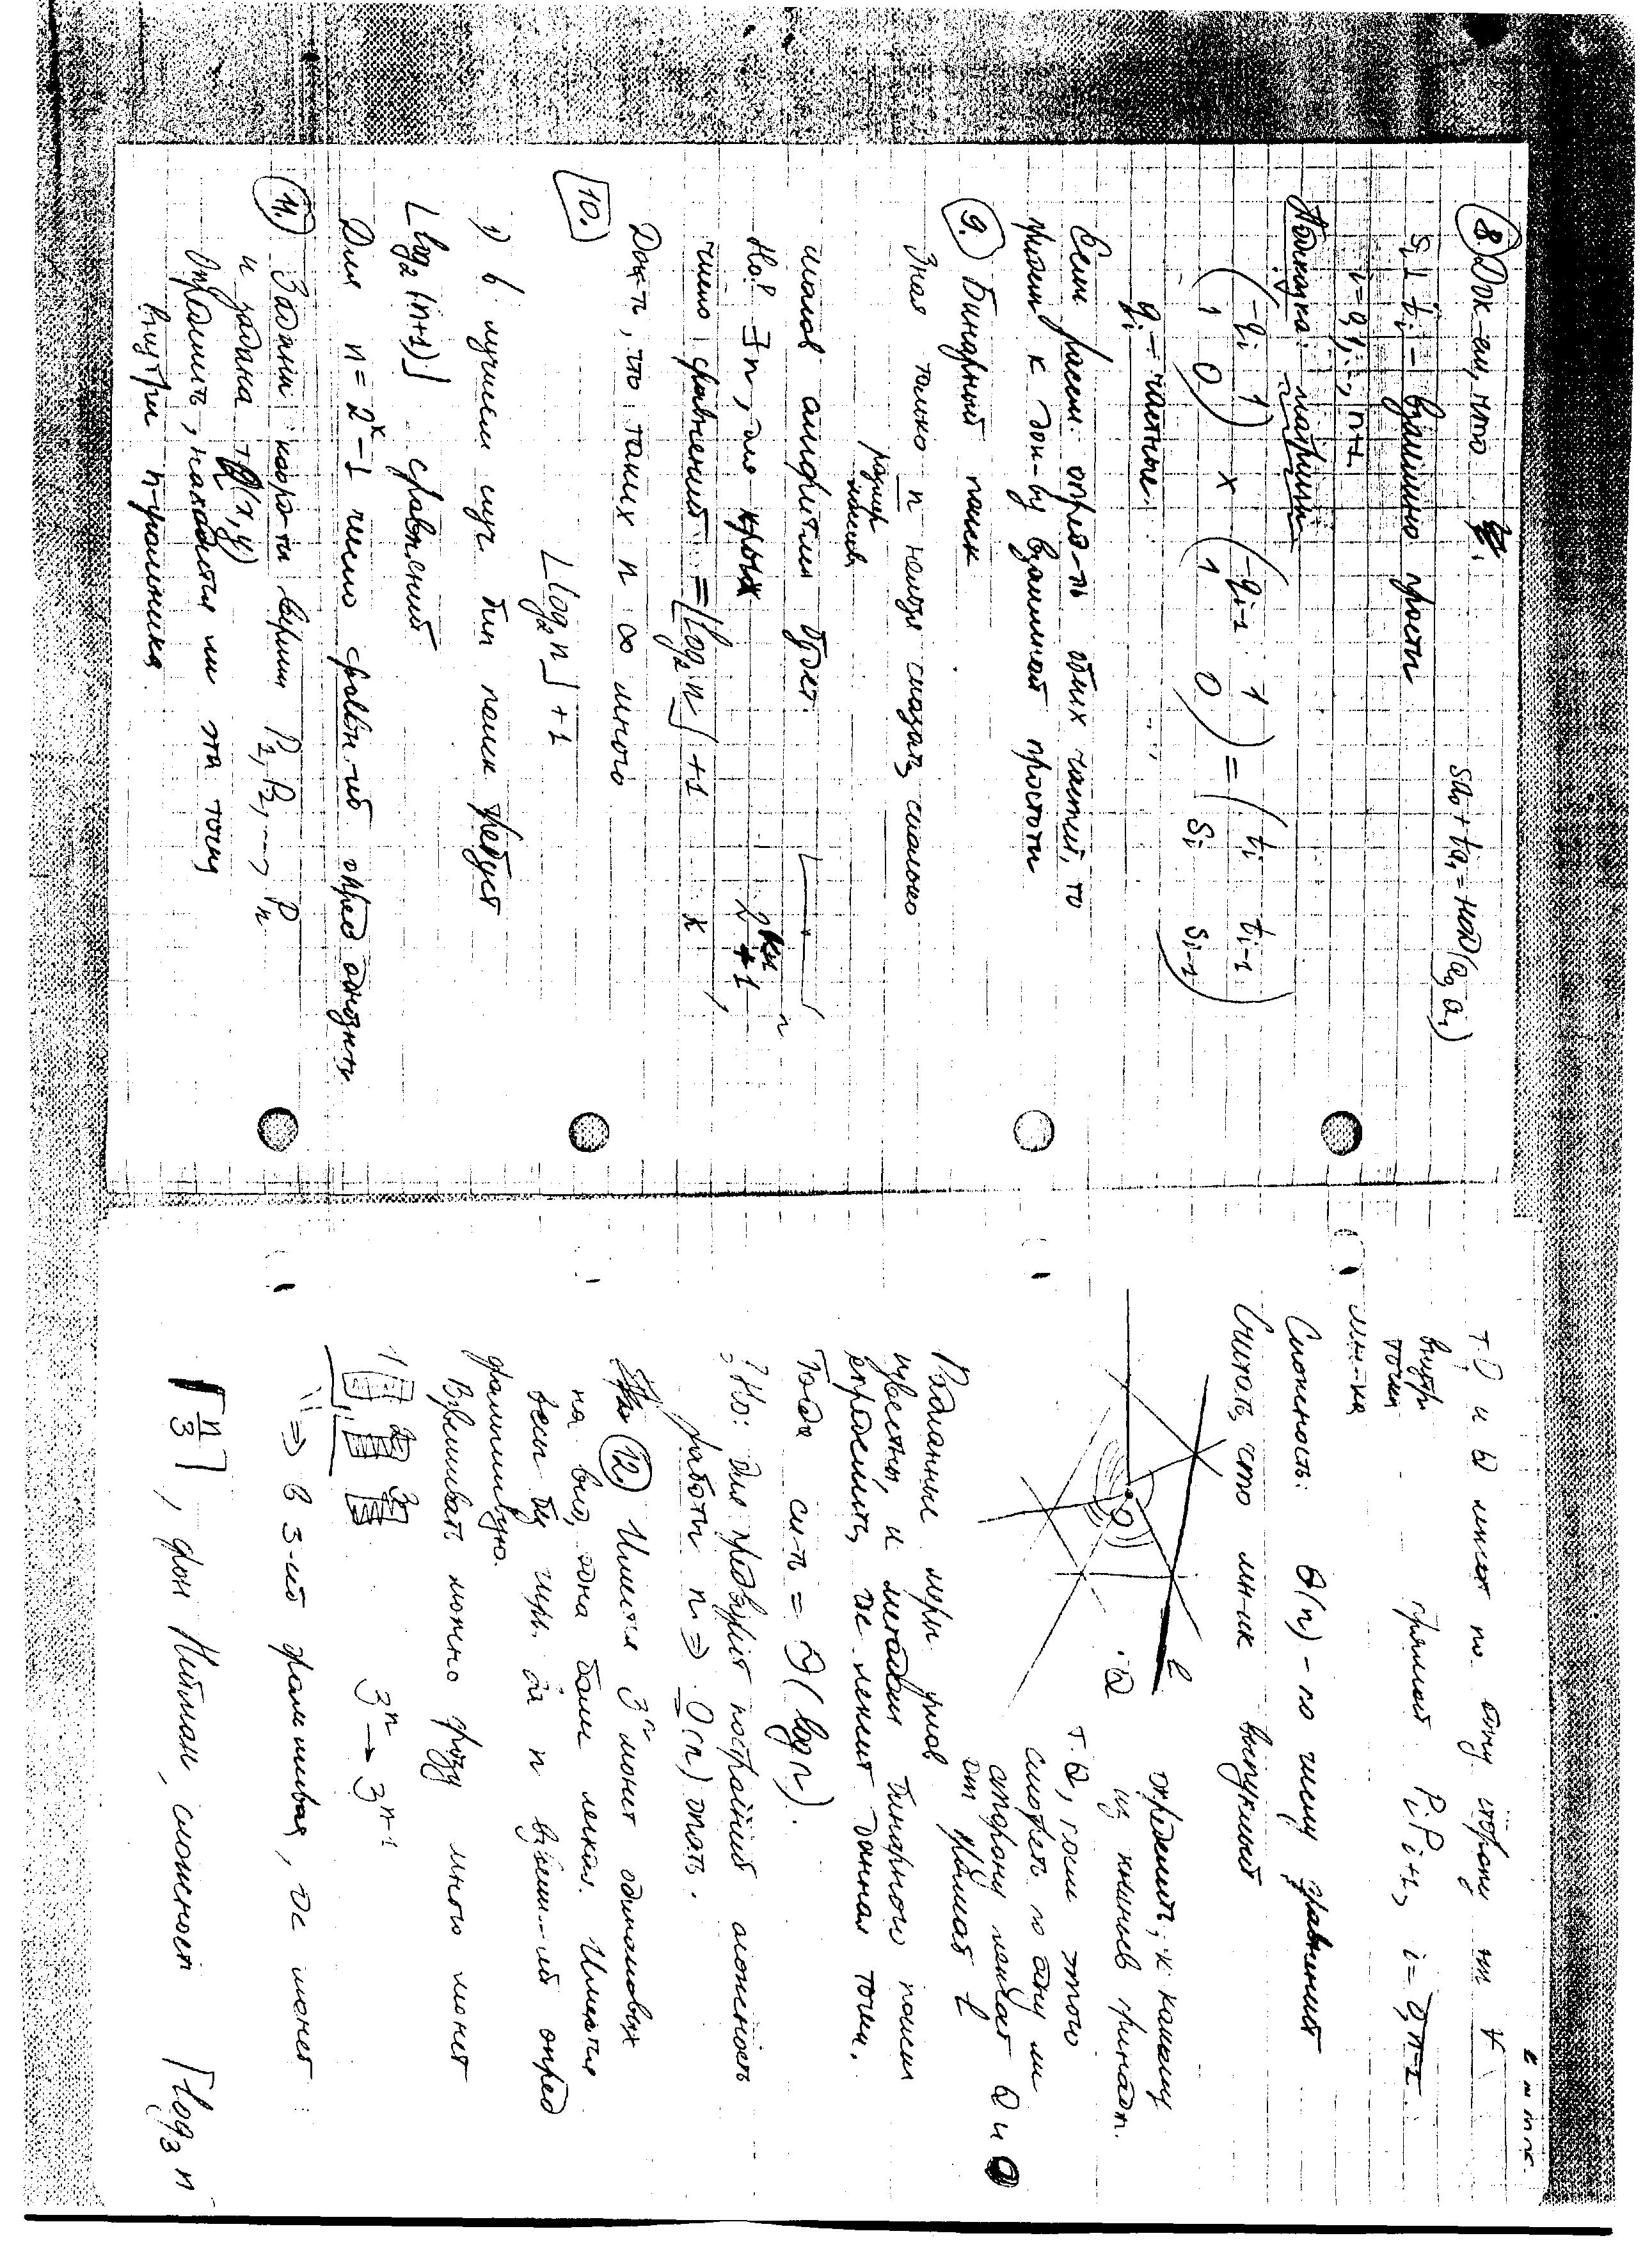 8. Док-ем, что
Sa₀ + ta₁ = НОД(a₀, a₁)
Sᵢ ⊥ tᵢ - взаимно просты
i = 0, 1, ..., n+1
Подсказка: матрицы
(-qᵢ 1 / 1 0) × (-qᵢ₋₁ 1 / 1 0) = (tᵢ tᵢ₋₁ / Sᵢ Sᵢ₋₁)
qᵢ - частные.
Если рассм. опред-ль обеих частей, то
придем к док-ву взаимной простоты
9. Бинарный поиск
Зная только n нельзя сказать, сколько
размер массива
шагов алгоритма будет.
Но! ∃ n, для крых
число сравнений = ⌊log₂ n⌋ + 1
Док-ть, что таких n ∞ много
10. ⌊log₂ n⌋ + 1
1) В лучшем случ. бин поиск требует
⌊log₂(n+1)⌋ сравнений
Для n = 2ˣ - 1 число сравн-ий опред однозн-но
11. Заданы коор-ты вершин P₁, P₂, ..., Pₙ
и задана т. Q(x, y)
Определить, находится ли эта точка
внутри n-угольника.
т. O и Q лежат по одну сторону от ∀
внутр точка мн-ка
прямой PᵢPᵢ₊₁, i = 0, n-1
Сложность: θ(n) - по числу сравнений
Считать, что мн-ик выпуклый
l
.Q
O
определить, к какому
из клиньев принадл.
т Q, после этого
смотреть по одну ли
сторону лежат Q и O
от прямой l
Радианные меры углов
известны, и методом бинарного поиска
определить, где лежит данная точка.
Тогда сл-ть = θ(log n).
Но: для предварит построений сложность
работы n ⇒ O(n) опять.
12. Имеется 3ⁿ монет одинаковых
на вид, одна более легкая. Имеются
весы без гирь. За n взвеш-ий опред
фальшивую.
Взвешивать можно сразу много монет
1 2 3
3ⁿ → 3ⁿ⁻¹
⇒ в 3-ей фальшивая, ос монет
⌈n/3⌉, фон Нейман, сложность ⌈log₃ n